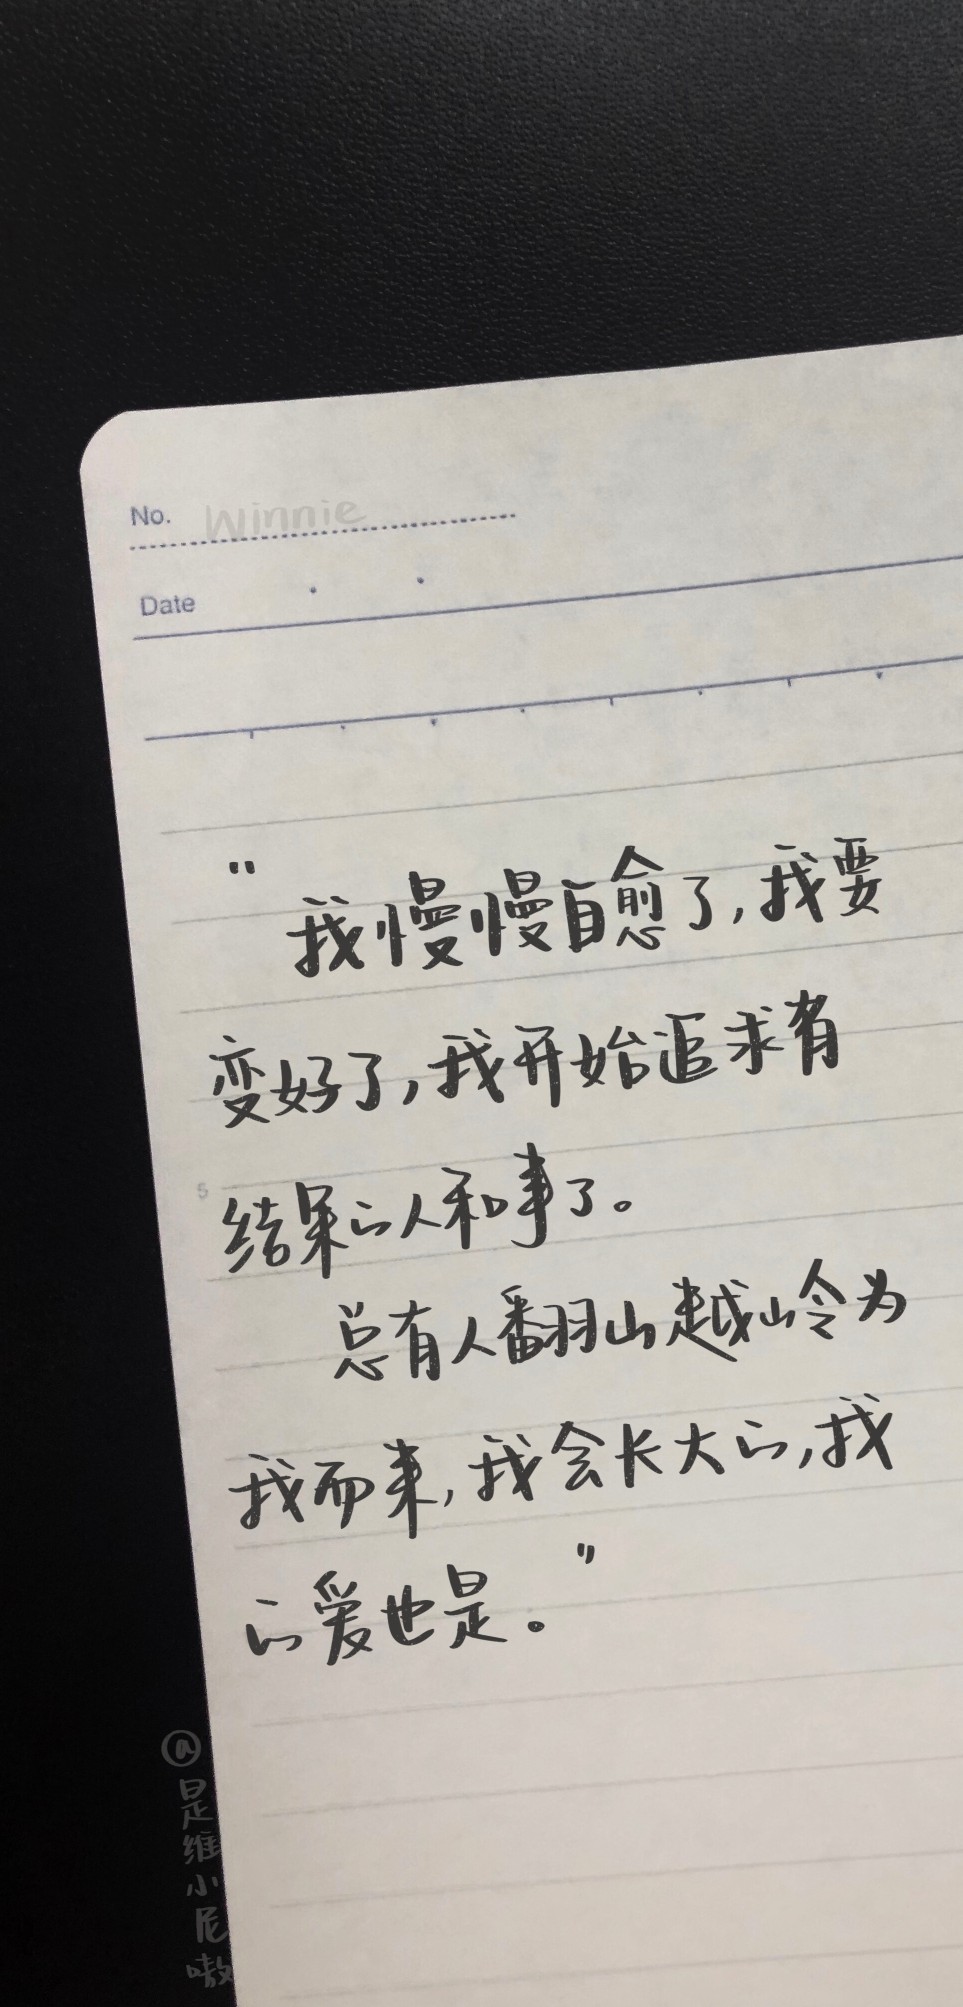 No. Winnie
Date
"我慢慢自愈了,我要
变好了,我开始追求有
5
结果的人和事了。
总有人翻山越岭为
我而来,我会长大的,我
的爱也是。"
@是维小尼嗷